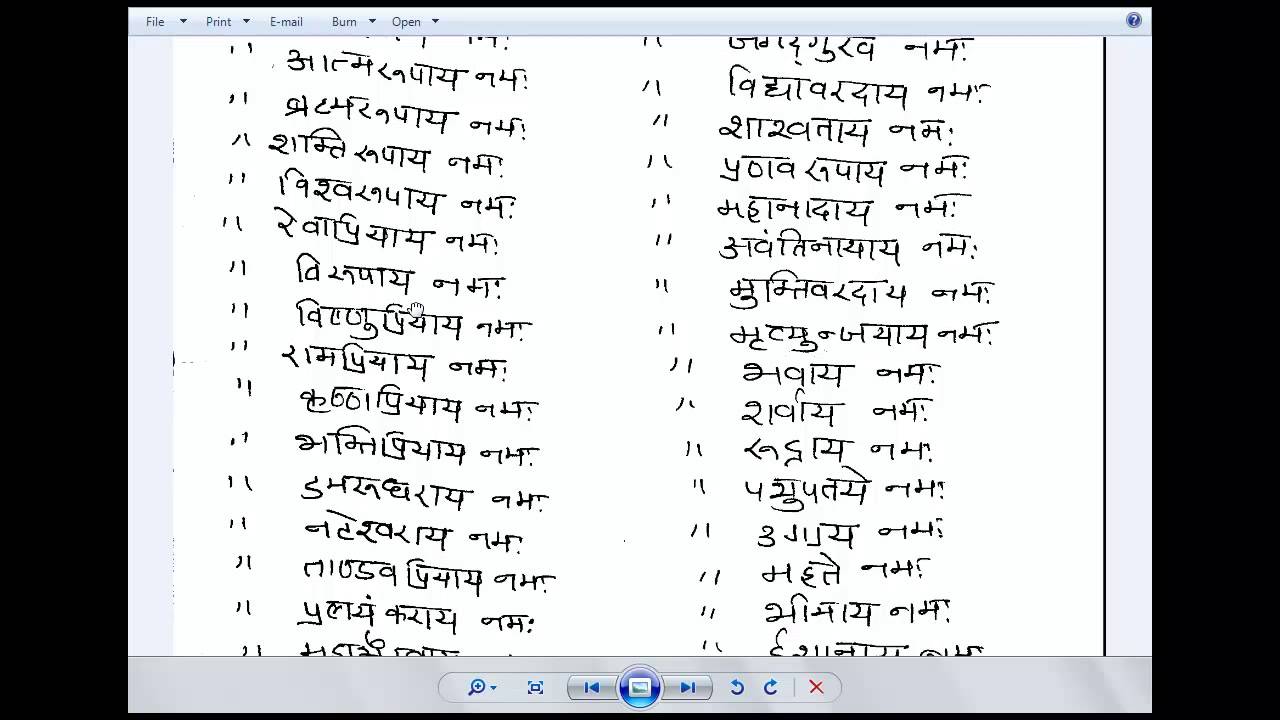 File Print E-mail Burn Open
" जगद्गुरवे नमः
" आत्मरूपाय नमः
" विद्यावरदाय नमः
" ब्रह्मरूपाय नमः
" शाश्वताय नमः
" शक्तिरूपाय नमः
" प्रणवरूपाय नमः
" विश्वरूपाय नमः
" महानादाय नमः
" रेवाप्रियाय नमः
" अवंतिनाथाय नमः
" विरूपाय नमः
" मुक्तिवरदाय नमः
" विष्णुप्रियाय नमः
" मृत्युन्जयाय नमः
" रामप्रियाय नमः
" भवाय नमः
" कृष्णप्रियाय नमः
" शर्वाय नमः
" भक्तिप्रियाय नमः
" रूद्राय नमः
" डमरूधराय नमः
" पशुपतये नमः
" नटेश्वराय नमः
" उग्राय नमः
" ताण्डवप्रियाय नमः
" महते नमः
" प्रलयंकराय नमः
" भीमाय नमः
" ईशानाय नमः